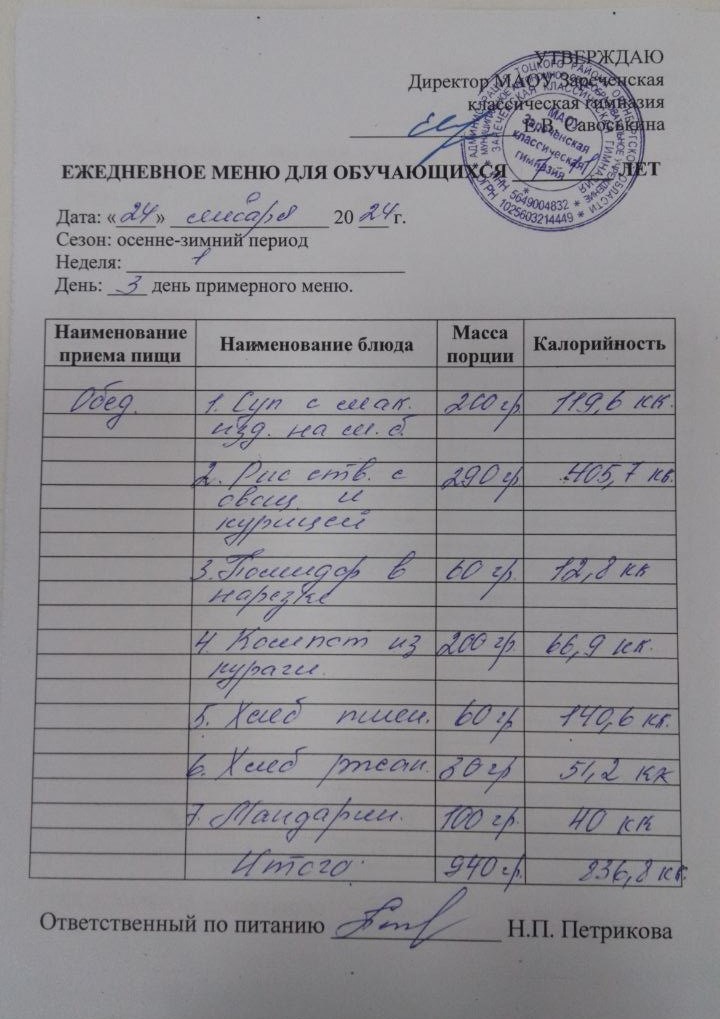 УТВЕРЖДАЮ
Директор МАОУ Зареченская
классическая гимназия
Е.В. Савоськина
ЕЖЕДНЕВНОЕ МЕНЮ ДЛЯ ОБУЧАЮЩИХСЯ ЛЕТ
МАОУ Зареченская классическая гимназия
ИНН 5649004832 * ОГРН 1025603214449
Дата: «24» января 2024 г.
Сезон: осенне-зимний период
Неделя: 1
День: 3 день примерного меню.
Наименование приема пищи Наименование блюда Масса порции Калорийность
Обед. 1. Суп с мак. 200 гр 119,6 кк.
изд. на м.б.
2. Рис отв. с 290 гр 405,7 кк.
овощ. и
курицей
3. Помидор в 60 гр. 12,8 кк
нарезке
4. Компот из 200 гр. 66,9 кк.
кураги.
5. Хлеб пшен. 60 гр 140,6 кк.
6. Хлеб ржан. 30 гр 51,2 кк
7. Мандарин. 100 гр. 40 кк
Итого: 940 гр. 836,8 кк.
Ответственный по питанию Н.П. Петрикова